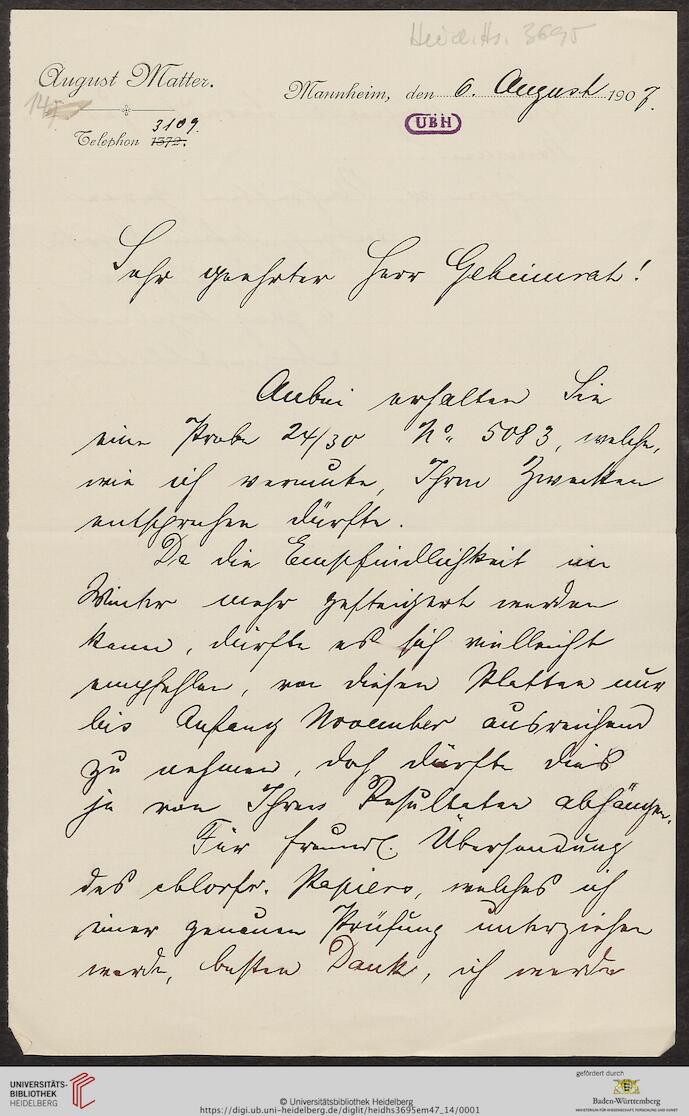 Heid. Hs. 3695
August Matter.
Mannheim, den 6. August 1907.
145
UBH
3109.
Telephon 1372.
Sehr geehrter Herr Geheimrat!
Anbei erhalten Sie
eine Probe 24/30 No. 5083, welche,
wie ich vermute, Ihren Zwecken
entsprechen dürfte.
Da die Empfindlichkeit im
Winter mehr gesteigert werden
kann, dürfte es sich vielleicht
empfehlen, von diesen Platten nur
bis Anfang November ausreichend
zu nehmen, doch dürfte dies
ja von Ihren Resultaten abhängen.
Für freundl. Übersendung
des chlorfr. Papiers, welches ich
einer genauen Prüfung unterziehen
werde, besten Dank, ich werde
UNIVERSITÄTS-
BIBLIOTHEK
HEIDELBERG
© Universitätsbibliothek Heidelberg
https://digi.ub.uni-heidelberg.de/diglit/heidhs3695em47_14/0001
gefördert durch
Baden-Württemberg
MINISTERIUM FÜR WISSENSCHAFT, FORSCHUNG UND KUNST